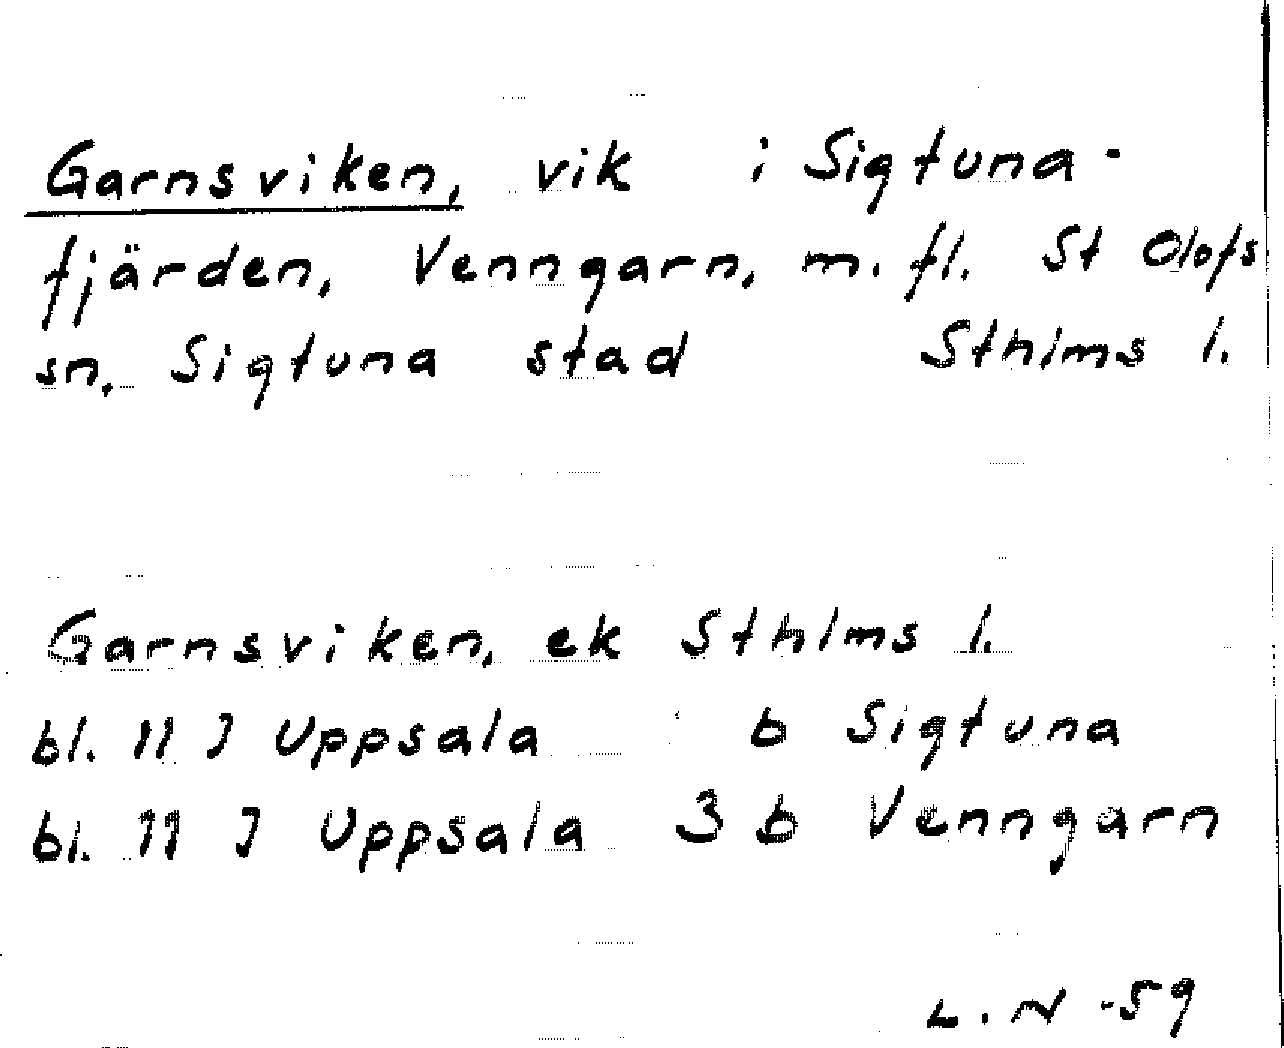 Garnsviken, vik i Sigtuna-
fjärden, Venngarn, m.fl. St Olofs
sn, Sigtuna stad Sthlms l.
Garnsviken, ek Sthlms l.
bl. 11 J Uppsala b Sigtuna
bl. 11 J Uppsala 3 b Venngarn
L. N -59